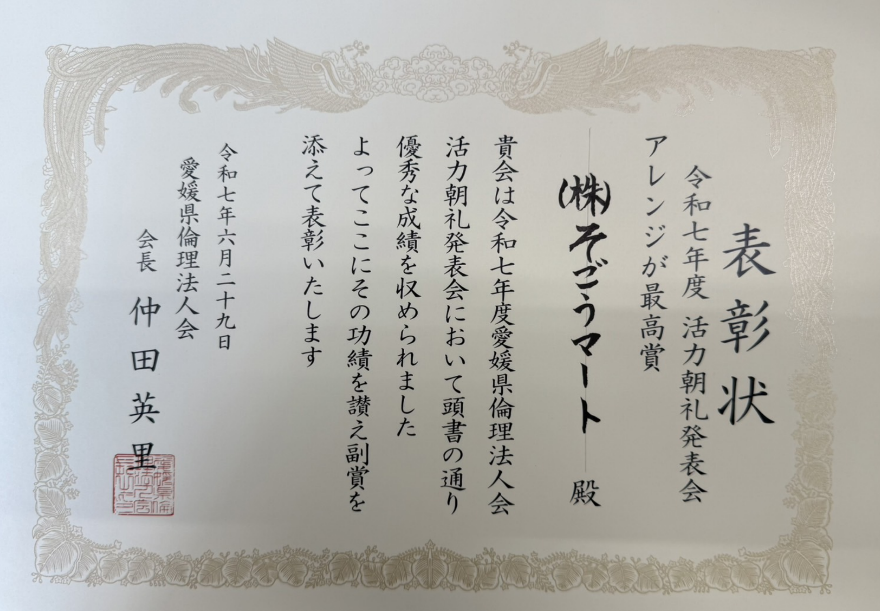 表彰状
令和七年度 活力朝礼発表会
アレンジが最高賞
(株)そごうマート 殿
貴会は令和七年度愛媛県倫理法人会
活力朝礼発表会において頭書の通り
優秀な成績を収められました
よってここにその功績を讃え副賞を
添えて表彰いたします
令和七年六月二十九日
愛媛県倫理法人会
会長 仲田英里